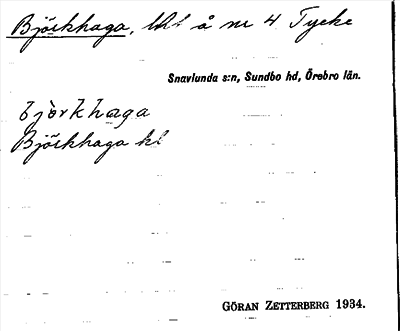 Björkhaga, lht å nr 4 Tycke
Snavlunda s:n, Sundbo hd, Örebro län.
bjòrkhaga
Björkhaga hl
GÖRAN ZETTERBERG 1934.